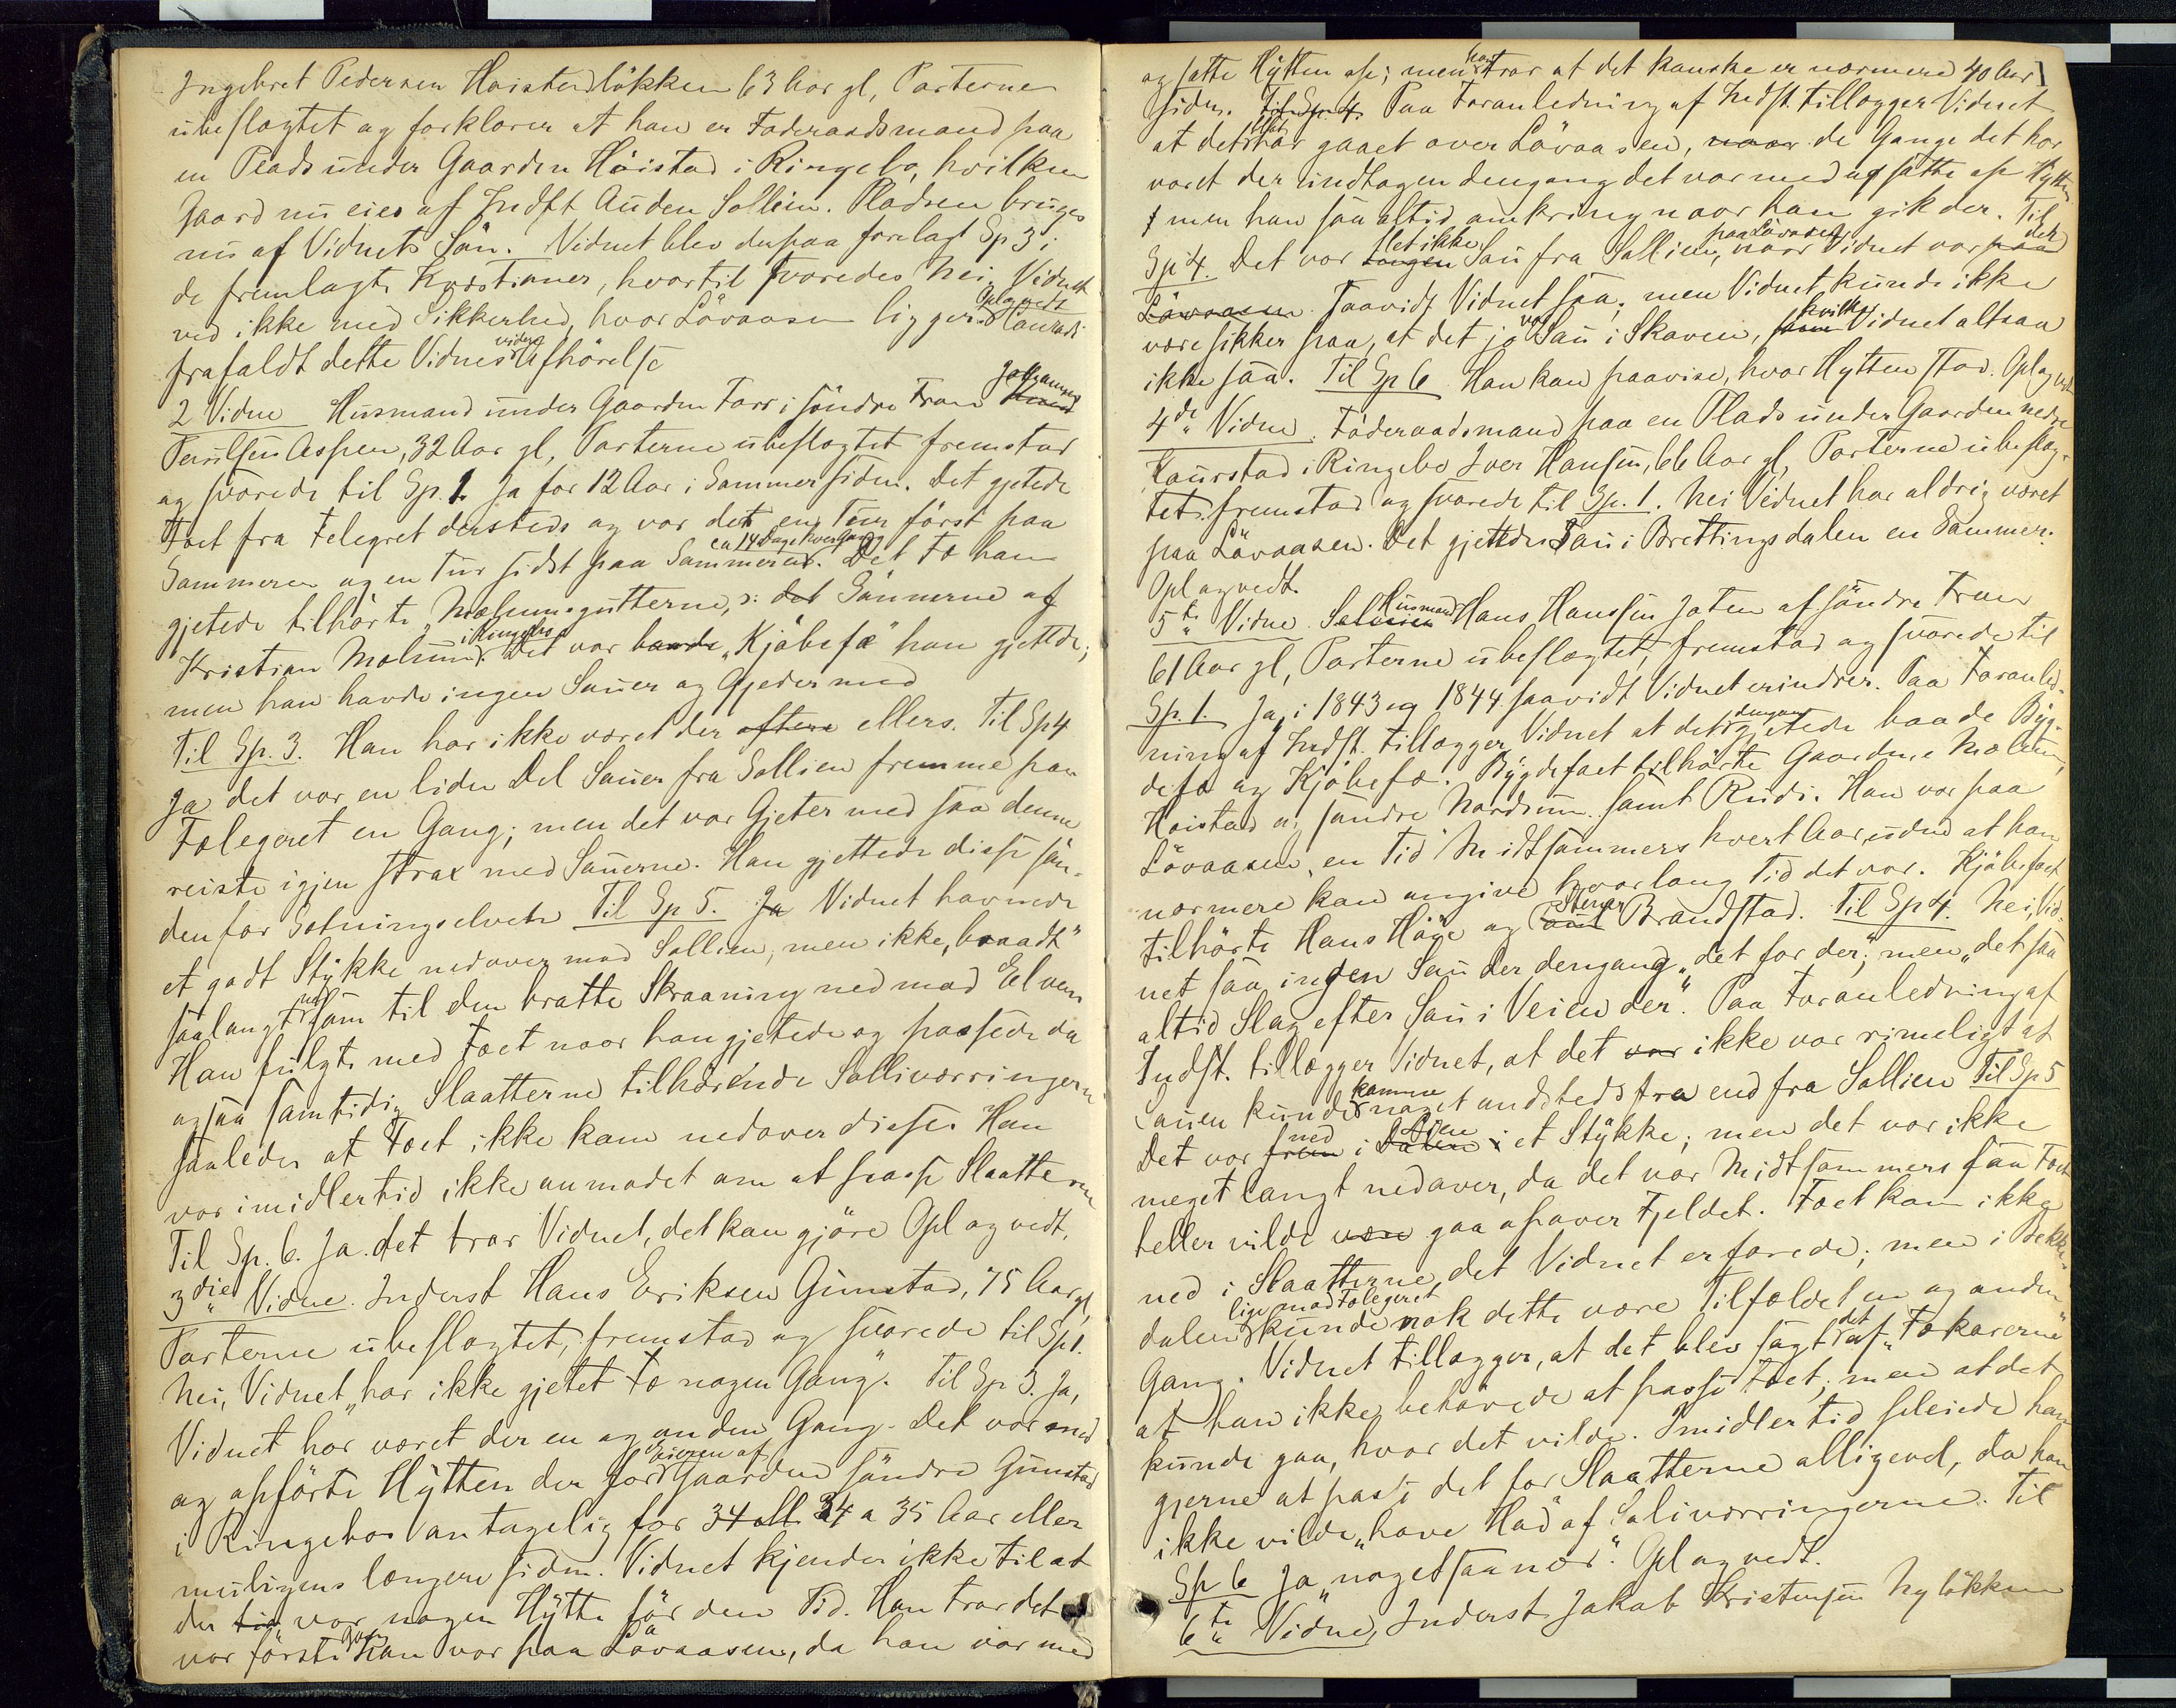 Ingebret Pedersen Høistadløkken 63 Aar gl, Parterne
ubeslægtet og forklarer at han er Føderaadsmand paa
en Plads under Gaarden Høistad i Ringebo, hvilken
Gaard nu eies af Indst Auden Sollien. Pladsen bruges
nu af Vidnets Søn. Vidnet blev derpaa forelagt Sp 3 i
de fremlagte Kvæstioner, hvortil svaredes Nei, Vidnet
ved ikke med Sikkerhed, hvor Løvaasen ligger. Oplæ vedt Conradi
frafaldt dette Vidnes videre Afhørelse
2 Vidne Husmand under Gaarden Forr i søndre Fron Johannes
Paulsen Aspen, 32 Aar gl, Parterne ubeslægtet fremstod
og svarede til Sp. 1. Ja for 12 Aar i Sommer siden. Det gjetede
Fæet fra Fælegret dersteds og var det en Tur først paa
Sommeren og en Tur sidst paa Sommeren ca 14 Dage hver Gang. Det Fæ han
gjetede tilhørte "Mælumsgutterne, ɔ: det Sønnerne af
Kristian Mælum i Ringebo. Det var baade "Kjøbefæ" han gjettede;
men han havde ingen Sauer og Gjeder med
Til Sp. 3. Han har ikke været der oftere ellers. Til Sp 4
Ja det var en liden Del Sauer fra Sollien fremme paa
Fælegeret en Gang; men det var Gjeter med saa denne
reiste igjen strax med Sauerne. Han gjettede disse søn-
denfor Sotningselvete Til Sp 5. Ja Vidnet havnede
et godt Stykke nedover mod Sollien, men ikke, "braadt"
saalangt ned som til den bratte Skraaning ned mod Elven
Han fulgte med Fæet naar han gjetede og passede da
ogsaa samtidig Slaatterne tilhørende Solliværringerne
saaledes at Fæet ikke kom nedover disse. Han
var imidlertid ikke anmodet om at passe Slaatterne
Til Sp. 6. Ja det tror Vidnet, det kan gjøre Opl og vedt.
3die Vidne. Inderst Hans Eriksen Gunstad, 75 Aar gl,
Parterne ubeslægtet, fremstod og svarede til Sp 1.
Nei, Vidnet "har ikke gjetet Fæ nogen Gang". Til Sp 3. Ja,
Vidnet har været der en og anden Gang. Det var med
og opførte Hytten der for Eieren af Gaarden søndre Gunstad
i Ringebo antagelig for 34 all 34 a 35 Aar eller
muligens længere siden. Vidnet kjender ikke til at
der tid var nogen Hytte før den Tid. Han tror det
var første Gang han var paa Løvaasen, da han var med
og satte Hytten op; men han tror at det kanske er nærmere 40 Aar
siden. Til Sp. 4 Paa Foranledning af Indst. tillægger Vidnet
at det blot har gaaet over Løvaasen, naar de Gange det har
været der undtagen dengang det var med og satte op Hytten
men han saa altid omkring naar han gik der. Til
Sp 4. Det var ingen let ikke Sau fra Sollien, naar Vidnet var paa Løvaasen der
Løvaasen saavidt Vidnet saa; men Vidnet kunde ikke
være sikker paa, at det jo var Sau i Skoven, som hvilke Vidnet altsaa
ikke saa. Til Sp 6 Han kan paavise, hvor Hytten stod. Opl og vedt
4de Vidne. Føderaadsmand paa en Plads under Gaarden nedre
Kaurstad i Ringebo Iver Hansen, 66 Aar gl, Parterne ubeslæg-
tet fremstod og svarede til Sp. 1. Nei Vidnet har aldrig været
paa Løvaasen. Det gjettedes Sau i Brettingsdalen en Sommer.
Opl og vedt.
5te Vidne. Husmand Hans Hanssen Joten af søndre Fron
61 Aar gl, Parterne ubeslægtet, fremstod og svarede til
Sp. 1. Ja, i 1843 og 1844 saavidt Vidnet erindrer. Paa Foranled-
ning af Indst. tillægger Vidnet at det dengang gjetede baade Byg-
defæ og Kjøbefæ. Bygdefæet tilhørte Gaardene Mælum,
Høistad og søndre Nordrum samt Rudi. Han var paa
Løvaasen, en Tid Midtsommers hvert Aar, uden at han
nærmere kan angive hvorlang Tid det var. Kjøbefæet
tilhørte Hans Høge og Stener Brandstad. Til Sp 4. Nei, Vid-
net saa ingen Sau der dengang "det for der"; men "det saa
altid Slag efter Sau i Veien der". Paa Foranledning af
Indst. tillægger Vidnet, at det var ikke var rimeligt at
Sauen kunde komme noget andetsteds fra end fra Sollien Til Sp 5
Det var frem ned i Dalen Lien i et Stykke; men det var ikke
meget langt nedover, da det var Midtsommers saa Fæet
heller vilde være gaa opover Fjeldet. Fæet kom ikke
ned i Slaatterne, det Vidnet erfarede; men i Bekke-
dalen lige mod Fælegeret kunde nok dette være Tilfældet en og anden
Gang. Vidnet tillægger, at det blev sagt det af "Fækarerne"
at han ikke behøvede at passe Fæet; men at det
kunde gaa, hvor det vilde. Imidlertid pleiede han
gjerne at passe det for Slaatterne alligevel, da han
ikke vilde "have Had" af Soliværringerne. Til
Sp 6 Ja, "noget saa nær". Opl og vedt.
6te Vidne, Inderst Jakob Kristensen Nyløkken